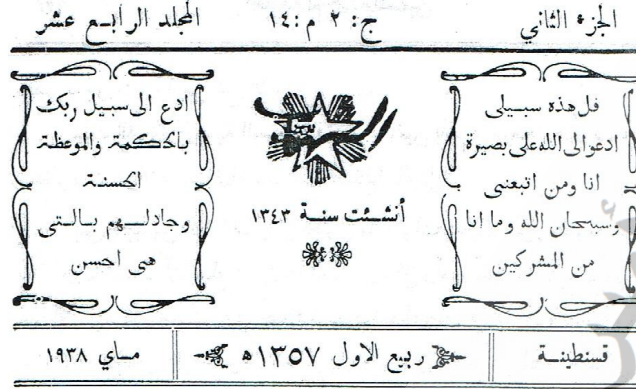 الجزء الثاني
ج: ٢ م: ١٤
المجلد الرابع عشر
قل هذه سبيلى
ادعوالى الله على بصيرة
انا ومن اتبعنى
وسبحان الله وما انا
من المشركين
أنشئت سنة ١٣٤٣
ادع الى سبيل ربك
بالحكمة والموعظة
الحسنة
وجادلهم بالتى
هى احسن
قسنطينة
ربيع الاول ١٣٥٧ه
ماي ١٩٣٨